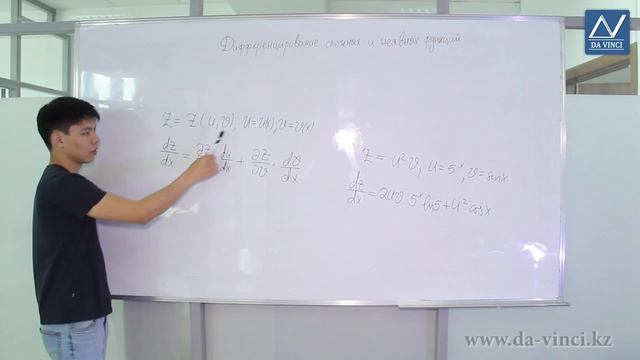 Дифференцирование сложных и неявных функций
Z = Z(u,v), u=u(x), v=v(x)
dz/dx = ∂Z du/dx + ∂Z/∂v · dv/dx
Z = u²v, u=5ˣ, v=sinx
dz/dx = 2uv·5ˣ ln5 + u² cosx
DA VINCI
www.da-vinci.kz